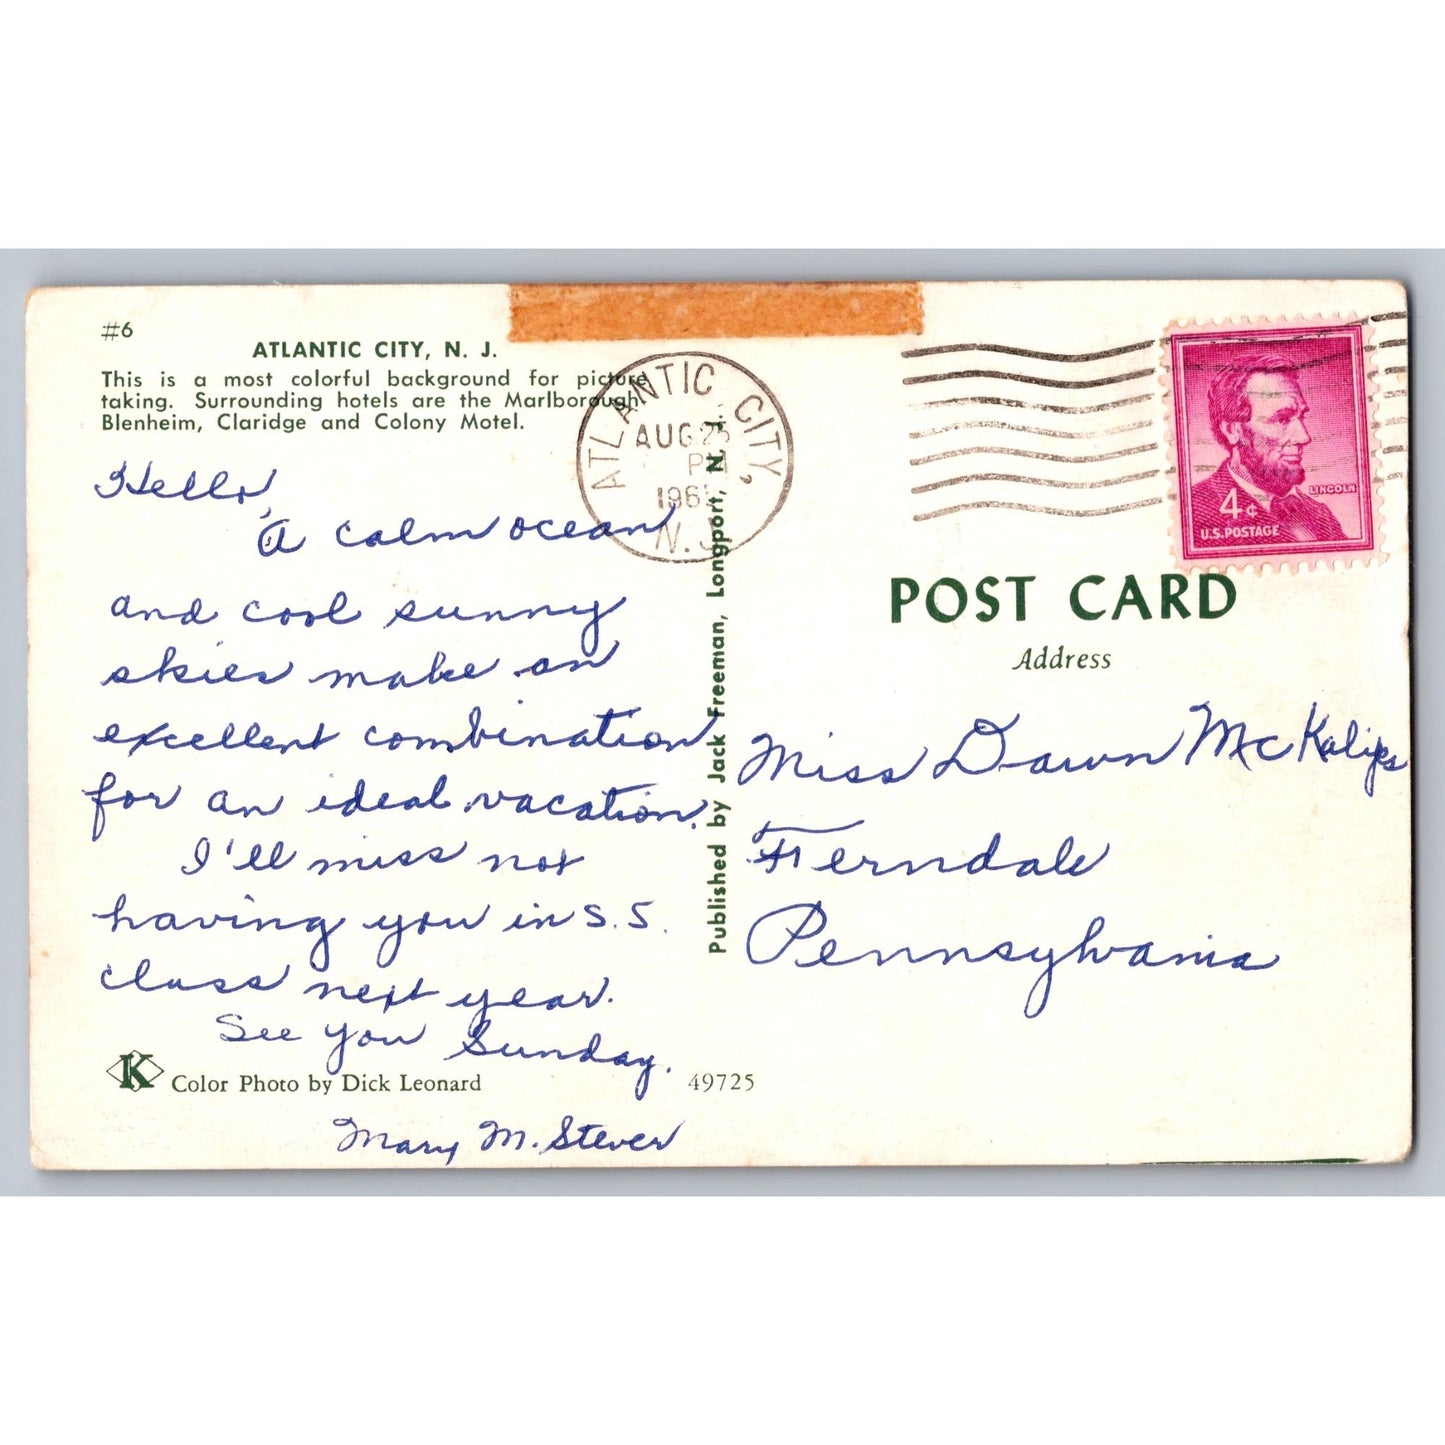 #6
ATLANTIC CITY, N. J.
This is a most colorful background for picture
taking. Surrounding hotels are the Marlborough
Blenheim, Claridge and Colony Motel.
Hello,
A calm ocean
and cool sunny
skies make an
excellent combination
for an ideal vacation.
I'll miss not
having you in S.S.
class next year.
See you Sunday.
Mary M. Stever
K Color Photo by Dick Leonard
49725
Published by Jack Freeman, Longport, N. J.
ATLANTIC CITY,
AUG
PM
N.J.
LINCOLN
4¢
U.S. POSTAGE
POST CARD
Address
Miss Dawn McKalips
Ferndale
Pennsylvania